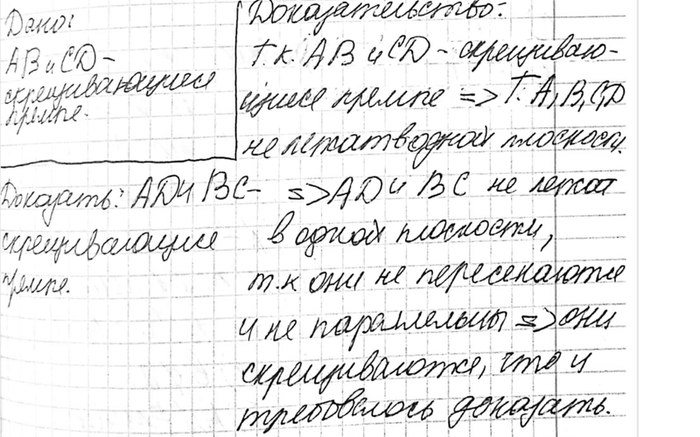 Дано:
AB и CD -
скрещивающиеся
прямые.
Доказать: AD и BC -
скрещивающие
прямые.
Доказательство:
Т.к. AB и CD - скрещиваю-
щиеся прямые => т. A, B, C, D
не лежат в одной плоскости.
=> AD и BC не лежат
в одной плоскости,
т.к они не пересекаются
и не параллельны => они
скрещиваются, что и
требовалось доказать.